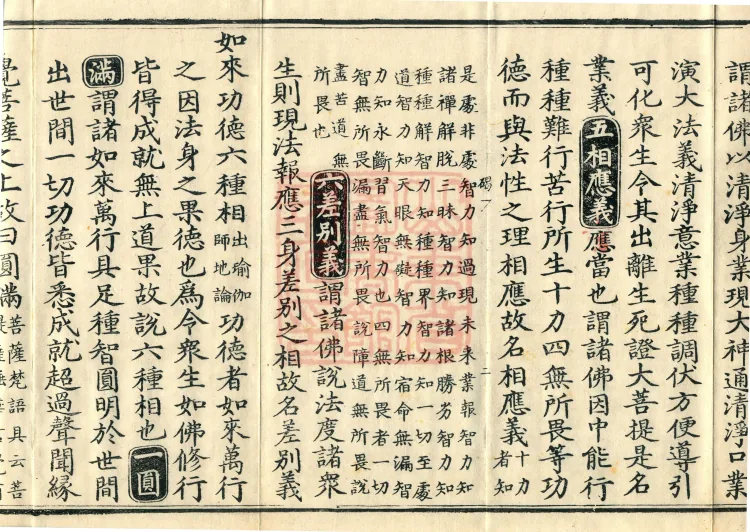 謂諸佛以清淨身業現大神通清淨口業
演大法義清淨意業種種調伏方便導引
可化眾生令其出離生死證大菩提是名
業義五相應義應當也謂諸佛因中能行
種種難行苦行所生十力四無所畏等功
德而與法性之理相應故名相應義十力者知
是處非處智力知過現未來業報智力知
諸禪解脫三昧智力知諸根勝劣智力知
種種解智力知種種界智力知一切至處
道智力知天眼無礙智力知宿命無漏智
力知永斷習氣智力也四無所畏者一切
智無所畏漏盡無所畏說障道無所畏說
盡苦道無
所畏也
六差別義謂諸佛說法度諸眾
生則現法報應三身差別之相故名差別義
如來功德六種相出瑜伽師地論功德者如來萬行
之因法身之果德也爲令眾生如佛修行
皆得成就無上道果故說六種相也一圓
滿謂諸如來萬行具足種智圓明於世間
出世間一切功德皆悉成就超過聲聞緣
覺菩薩之上故曰圓滿菩薩梵語具云菩